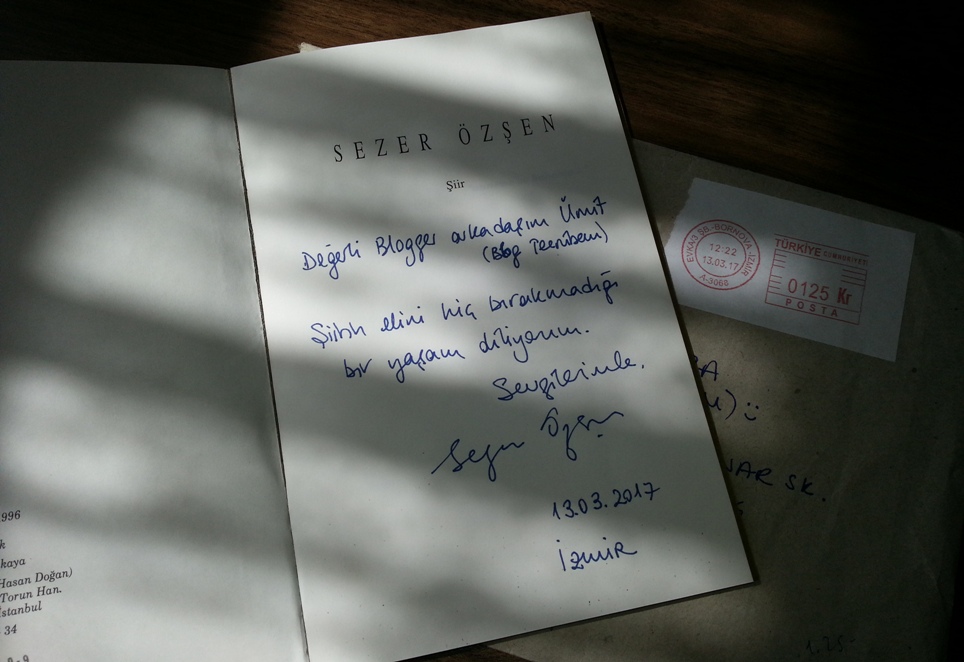 SEZER ÖZŞEN
Şiir
Değerli Blogger arkadaşım Ümit
(Blog Tecrübem)
Şiirin elini hiç bırakmadığı
bir yaşam diliyorum.
Sevgilerimle.
Sezer Özşen
13.03.2017
İzmir
996
k
kaya
Hasan Doğan)
Torun Han.
İstanbul
34
EVKA3 ŞB.-BORNOVA-İZMİR
12:22
13.03.17
A-3068
TÜRKİYE CUMHURİYETİ
0125 Kr
POSTA
A
) :)
NAR SK.
1.25